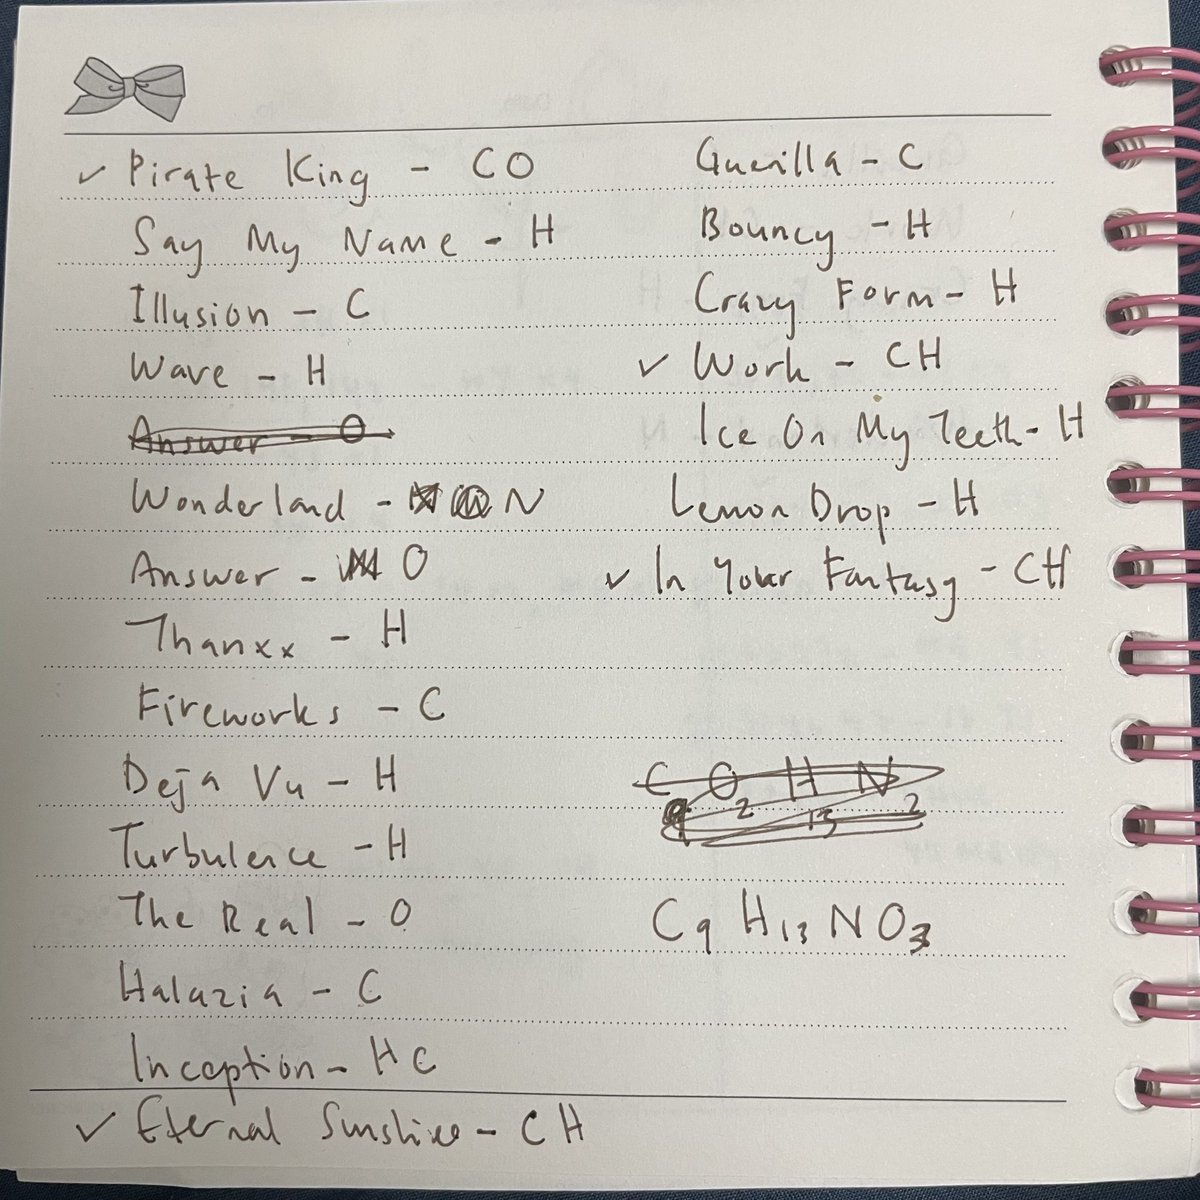 ✓ Pirate King - CO
Say My Name - H
Illusion - C
Wave - H
Answer - O
Wonderland - N
Answer - O
Thanxx - H
Fireworks - C
Deja Vu - H
Turbulence - H
The Real - O
Halazia - C
Inception - HC
✓ Eternal Sunshine - CH
Guerilla - C
Bouncy - H
Crazy Form - H
✓ Work - CH
Ice On My Teeth - H
Lemon Drop - H
✓ In Your Fantasy - CH
C O H N
9 2 13 2
C9 H13 NO3